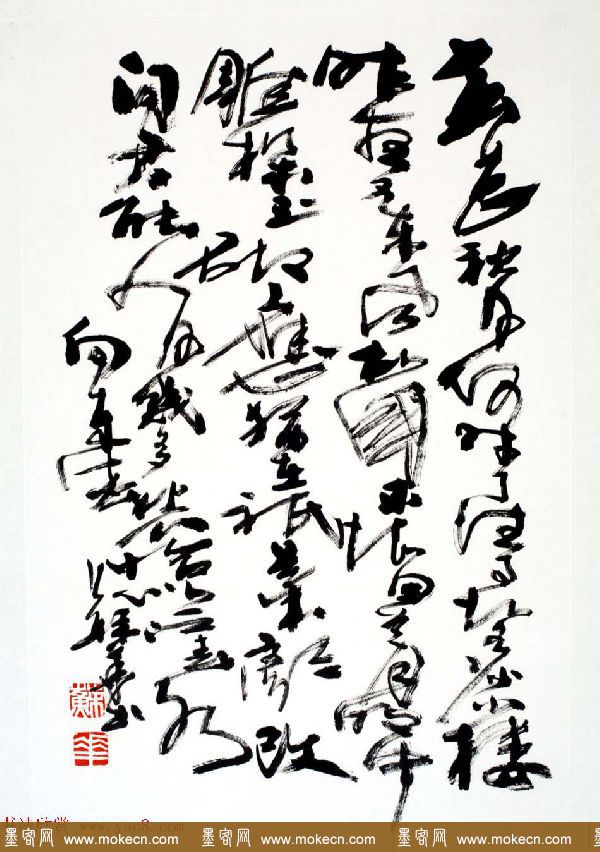 春花秋月何時了往事知多少小樓
昨夜又東風故國不堪回首月明中
雕欄玉砌應猶在只是朱顏改
問君能有幾多愁恰似一江春水
向東流
墨客网 www.mokecn.com 墨客网 www.mokecn.com 墨客网 www.mokecn.com